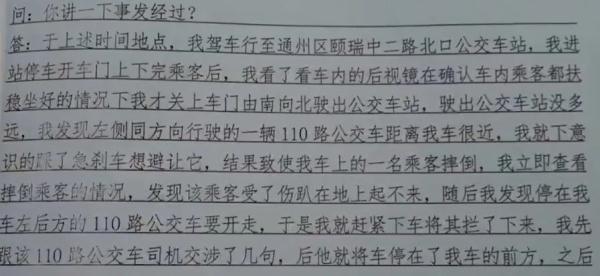 问：你讲一下事发经过？
答：于上述时间地点，我驾车行至通州区颐瑞中二路北口公交车站，我进
站停车开车门上下完乘客后，我看了看车内的后视镜在确认车内乘客都扶
稳坐好的情况下我才关上车门由南向北驶出公交车站，驶出公交车站没多
远，我发现左侧同方向行驶的一辆110路公交车距离我车很近，我就下意
识的踩了急刹车想避让它，结果致使我车上的一名乘客摔倒，我立即查看
摔倒乘客的情况，发现该乘客受了伤趴在地上起不来，随后我发现停在我
车左后方的110路公交车要开走，于是我就赶紧下车将其拦了下来，我先
跟该110路公交车司机交涉了几句，后他就将车停在了我车的前方，之后